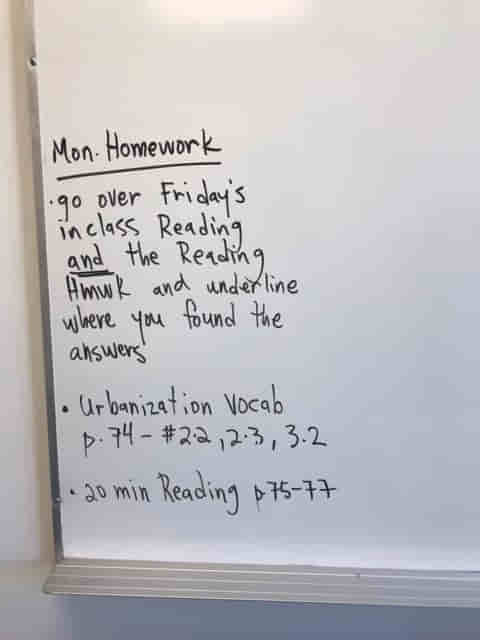 Mon. Homework
• go over Friday's
in class Reading
and the Reading
Hmwk and underline
where you found the
answers
• Urbanization Vocab
p. 74 - #2.2, 2.3, 3.2
• 20 min Reading p75-77